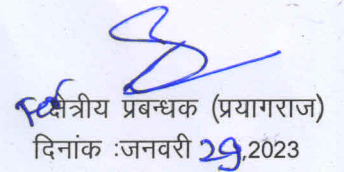 क्षेत्रीय प्रबन्धक (प्रयागराज)
दिनांक :जनवरी 29,2023